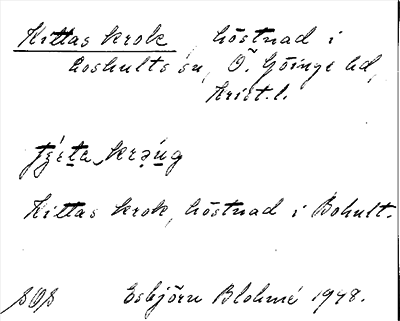 Kittas krok, höstnad i
Loshults sn, Ö. Göinge hd,
Krist. l.
Kittas krok, höstnad i Bohult.
SOS Esbjörn Blohmé 1948.